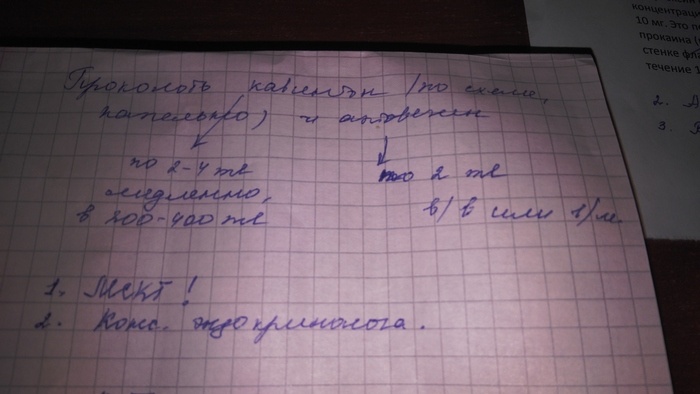 Проколоть кавинтон (по схеме,
капельно) и актовегин
по 2-4 мл
медленно,
в 200-400 мл
по 2 мл
в/в или в/м
1. МСКТ!
2. Конс. эндокринолога.
концентраци
10 мг. Это п
прокаина (
стенке фла
течение 1
2.
3.